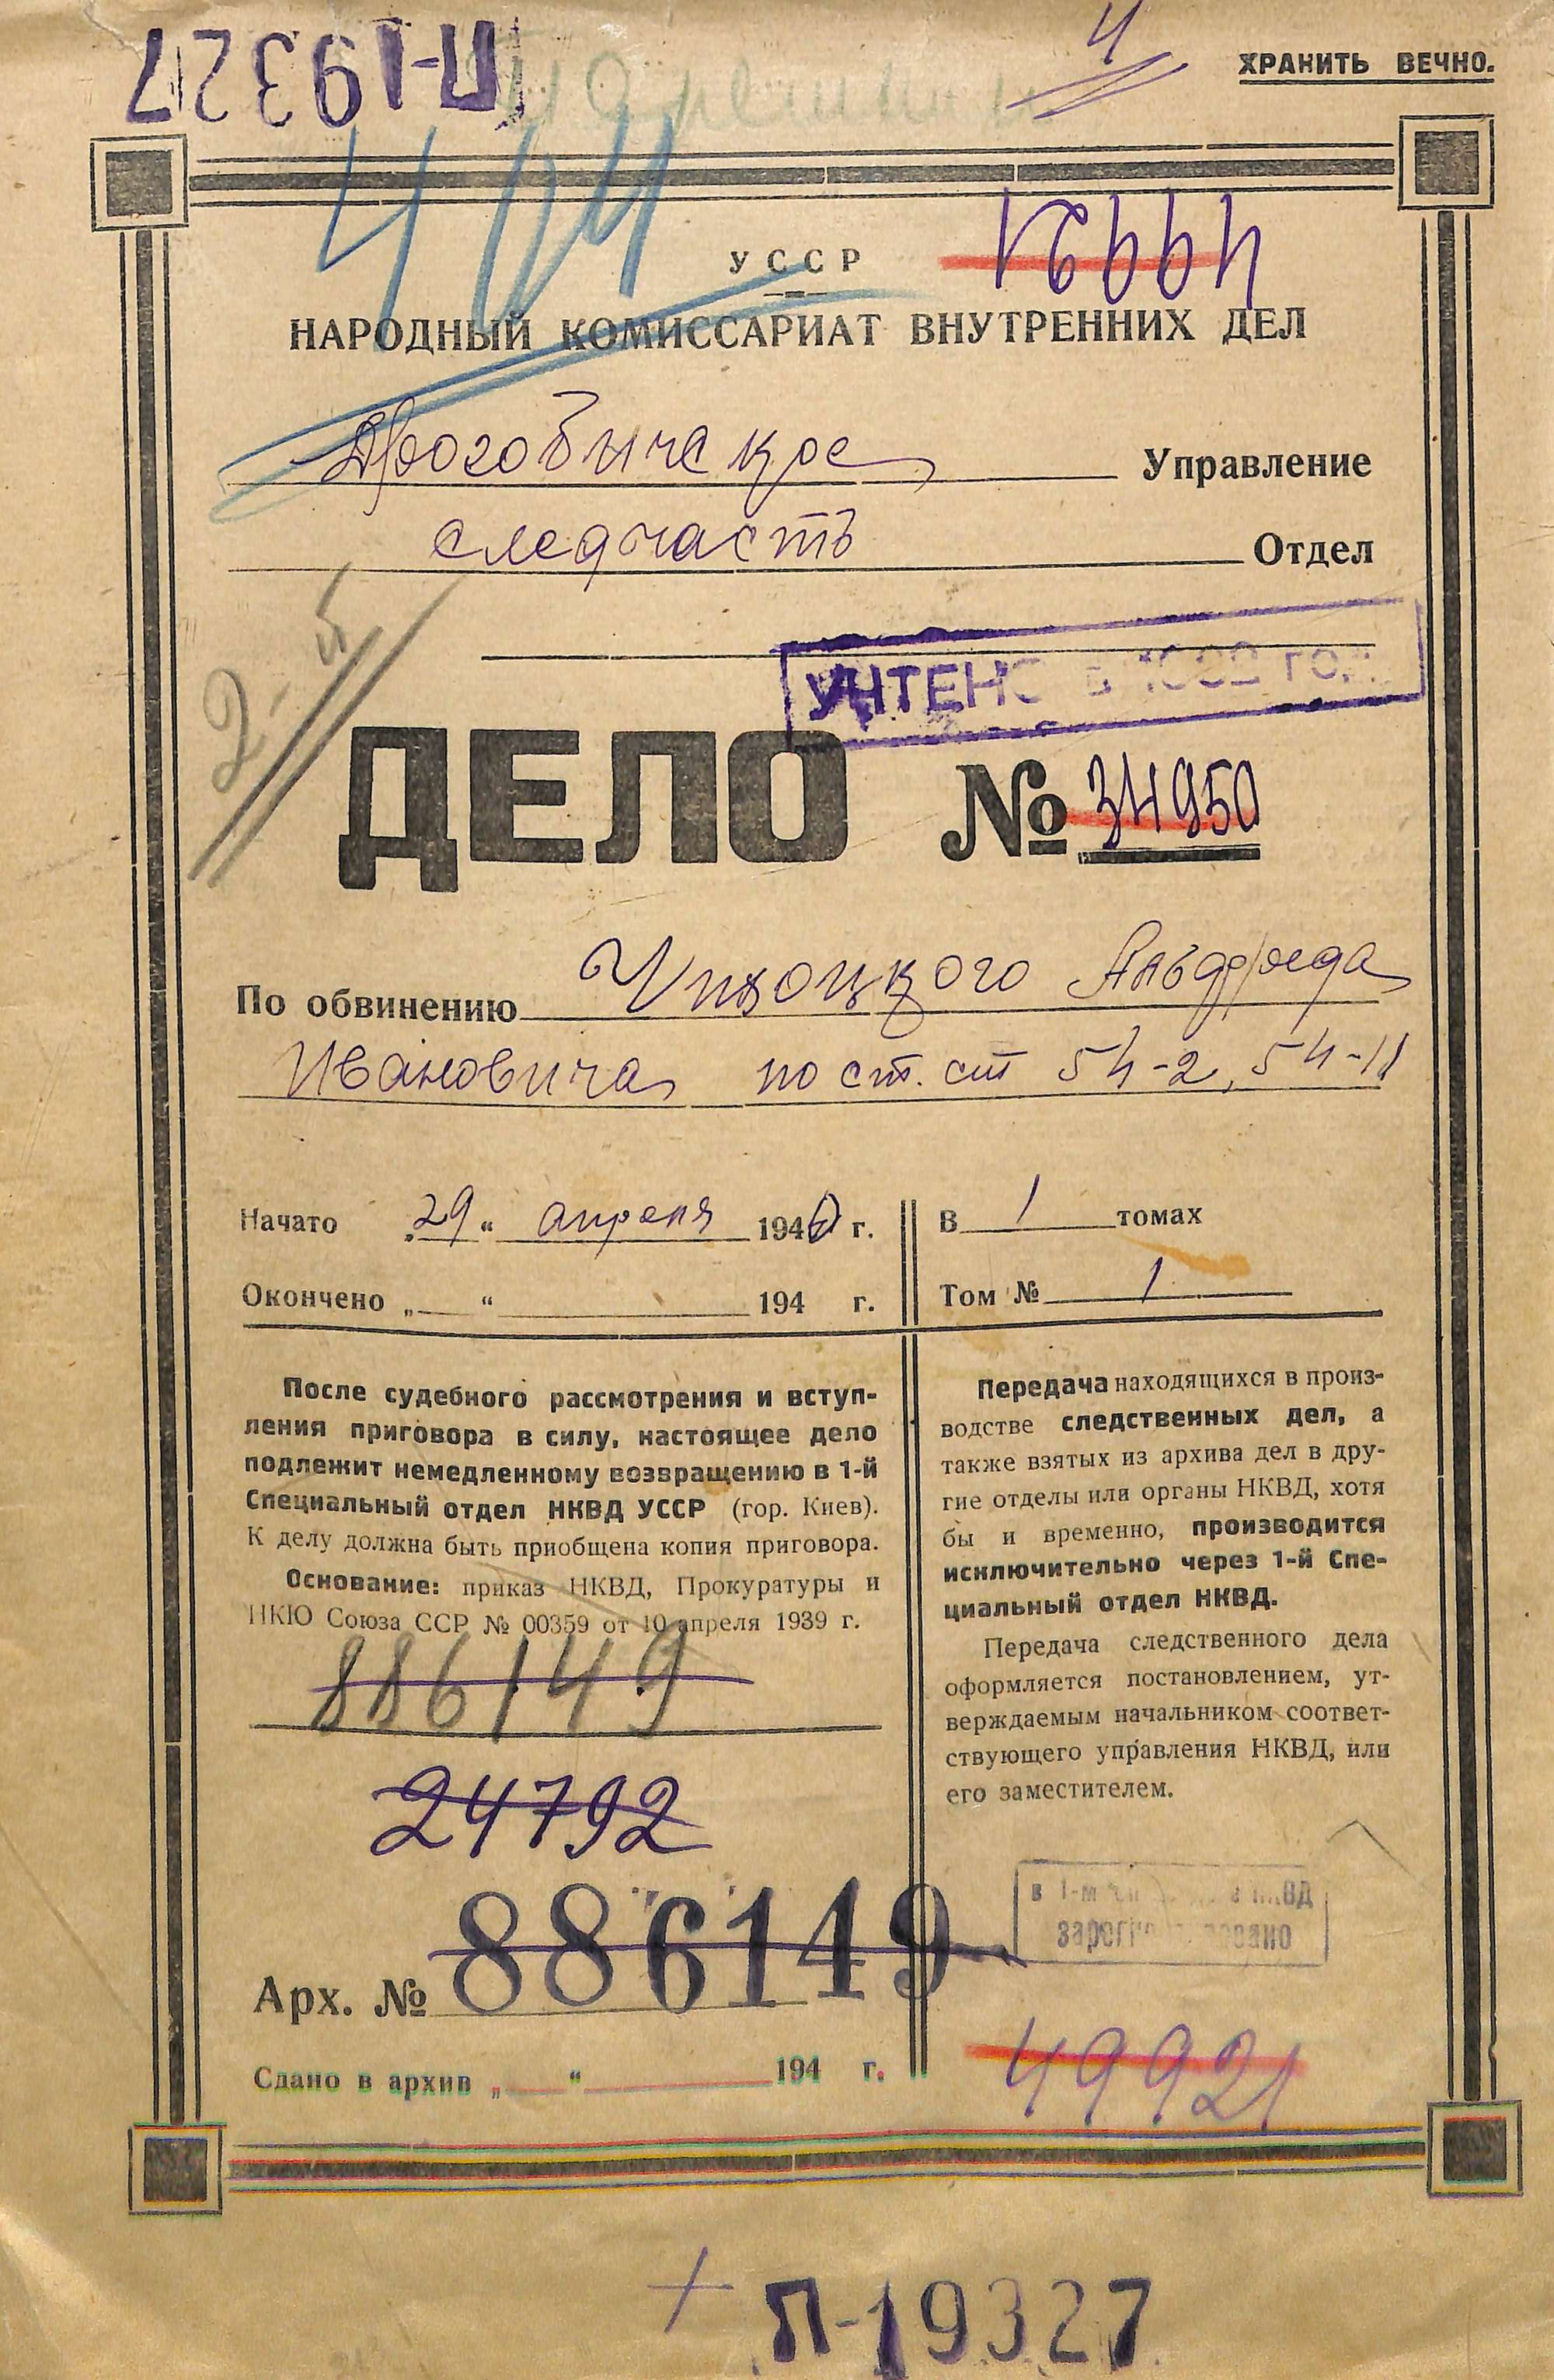 П-19327
4
ХРАНИТЬ ВЕЧНО.
404
49921
УССР
НАРОДНЫЙ КОМИССАРИАТ ВНУТРЕННИХ ДЕЛ
Дрогобычское Управление
следчасть Отдел
УЧТЕНО В ГОДУ
2-
ДЕЛО № 34950
По обвинению Альфреда
Ивановича по ст. ст 54-2, 54-11
Начато „29“ апреля 1940 г.
В 1 томах
Окончено „ “ 194 г.
Том № 1
После судебного рассмотрения и вступ-
ления приговора в силу, настоящее дело
подлежит немедленному возвращению в 1-й
Специальный отдел НКВД УССР (гор. Киев).
К делу должна быть приобщена копия приговора.
Основание: приказ НКВД, Прокуратуры и
НКЮ Союза ССР № 00359 от 10 апреля 1939 г.
Передача находящихся в произ-
водстве следственных дел, а
также взятых из архива дел в дру-
гие отделы или органы НКВД, хотя
бы и временно, производится
исключительно через 1-й Спе-
циальный отдел НКВД.
Передача следственного дела
оформляется постановлением, ут-
верждаемым начальником соответ-
ствующего управления НКВД, или
его заместителем.
886149
24792
в 1-м НКВД
Арх. № 886149
Сдано в архив „ “ 194 г.
49921
П-19327